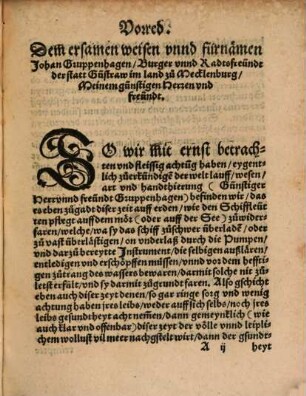 Vorred.
Dem ersamen weisen vnnd fürnämen
Johan Gruppenhagen/ Burger vnnd Radtsfreündt
der statt Güstraw im land zů Mecklenburg/
Meinem günstigen Herren vnd
freündt.
SO wir mit ernst betrach-
ten vnd fleissig achtůg haben/ eygent-
lich zůerkündigē der welt lauff/ wesen/
art vnd handthierung (Günstiger
Herr vnnd freündt Gruppenhagen) befinden wir/ das
es eben zůgadt diser zeit auff erden/ wie den Schiffleüt
ten pflegt auff dem mör (oder auff der See) zůwider-
faren/ welche/ wa sy das schiff zůschwer überladē/ oder
zů vast überlästigen/ on vnderlaß durch die Pumpen/
vnd dar zů bereyte Instrument/ die selbigen außlären/
entledigen vnd erschöpffen müssen/ vnnd vor dem hefftri
gen zůtrang des wassers bewaren/ darmit solche nit zů-
letst erfült/ vnd sy darmit zůgrund faren. Also gschicht
eben auch diser zeyt denen/ so gar ringe sorg vnd wenig
achtung haben jres leibs/ weder auff sich selbs/ noch jres
leibs gesundtheyt acht nem̄en/ dann gemeynklich (wie
auch klar vnd offenbar) diser zeyt der völle vnnd leipli-
chem wollust vil meer nachgstelt wirt/ dann der gsund
A ij heyt